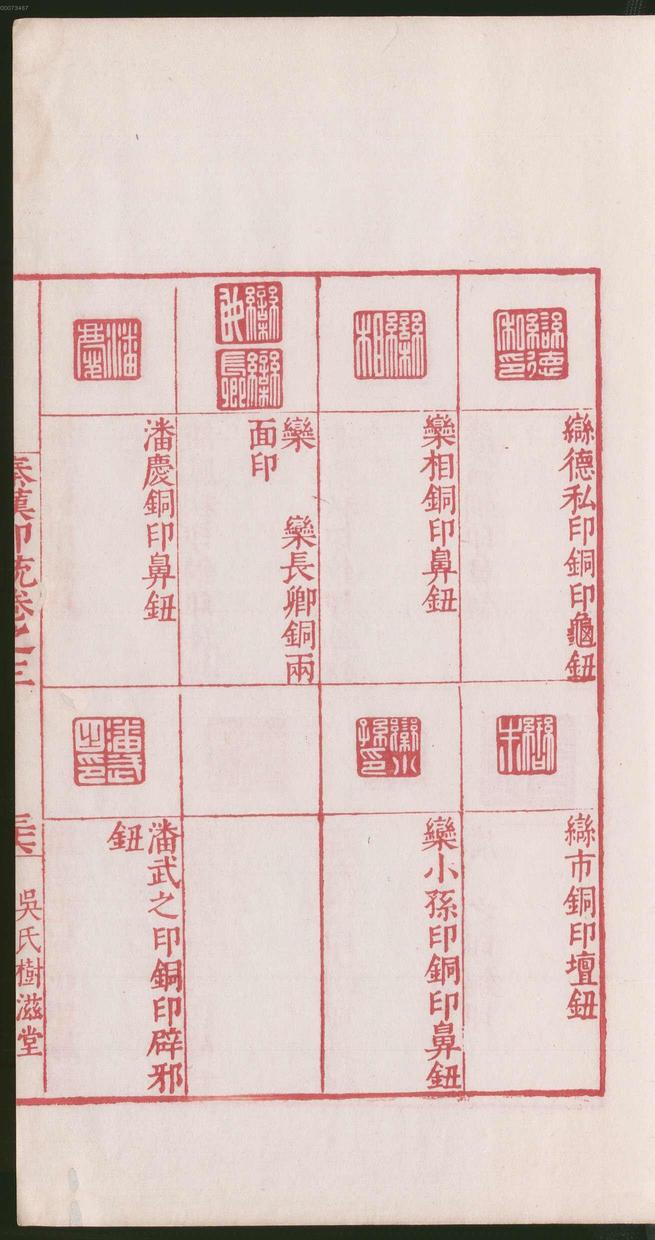 䜌德私印銅印龜鈕
欒相銅印鼻鈕
欒 欒長卿銅兩
面印
潘慶銅印鼻鈕
䜌市銅印壇鈕
欒小孫印銅印鼻鈕
潘武之印銅印辟邪
鈕
秦漢印統卷之三
吳氏樹滋堂
00073467